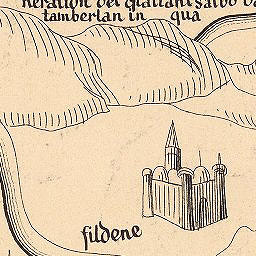 neration del gianani salbo
tamberlan in qua
fildene